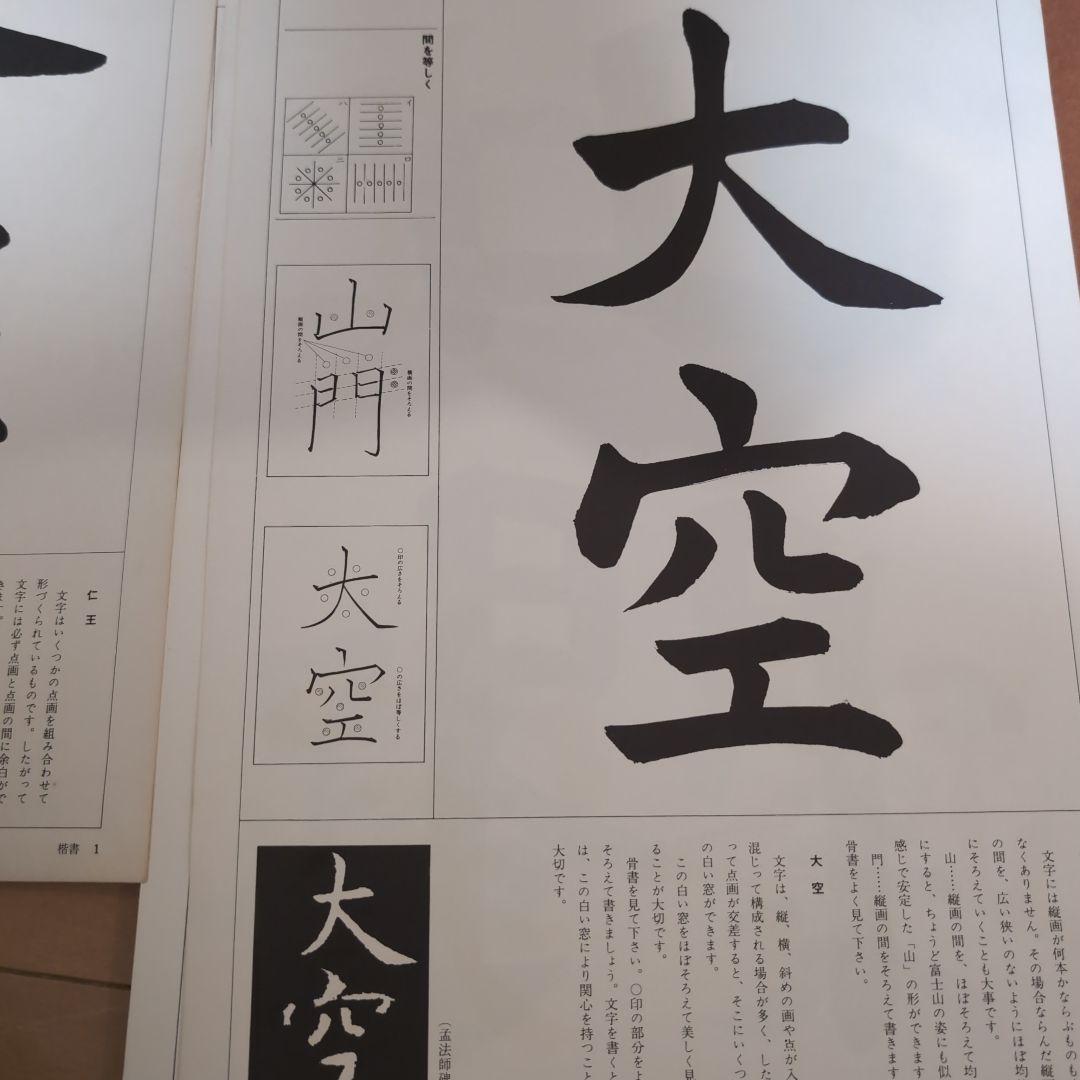 大空
間を等しく
イ
ロ
ハ
ニ
山門
縦画の間をそろえる
横画の間をそろえる
大空
○印の広さをそろえる
○の広さをほぼ等しくする
文字には縦画が何本かならぶものも
なくありません。その場合ならんだ縦
の間を、広い狭いのないようにほぼ均
にそろえていくことも大事です。
山……縦画の間を、ほぼそろえて均
にすると、ちょうど富士山の姿にも似
感じで安定した「山」の形ができます
門……縦画の間をそろえて書きます
骨書をよく見て下さい。
大空
文字は、縦、横、斜めの画や点が入
混じって構成される場合が多く、した
って点画が交差すると、そこにいくつ
の白い窓ができます。
この白い窓をほぼそろえて美しく見
ることが大切です。
骨書を見て下さい。○印の部分をよ
そろえて書きましょう。文字を書くと
は、この白い窓により関心を持つこと
大切です。
大空
(孟法師碑
仁王
文字はいくつかの点画を組み合わせて
形づくられているものです。したがって
文字には必ず点画と点画の間に余白がで
きます。
楷書 1